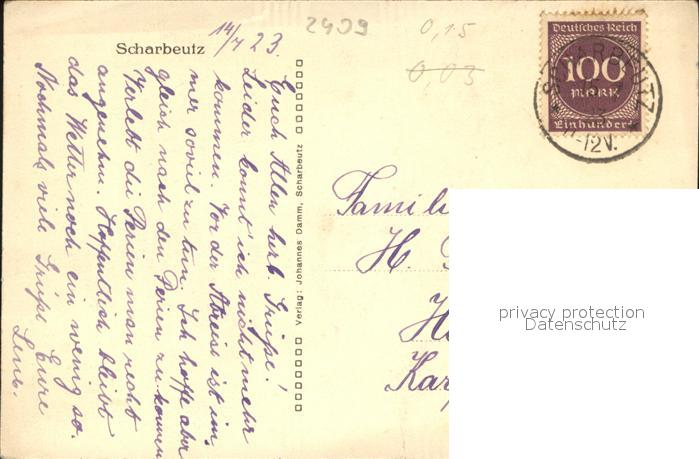 Scharbeutz
14/7 23.
2409
0,15
0,03
Deutsches Reich
100
MARK
Einhundert
SCHARBEUTZ
11-12V.
Euch Allen herzl. Grüße!
Leider konnt' ich nicht mehr
kommen. Vor der Abreise ist im-
mer soviel zu tun. Ich hoffe aber
gleich nach den Ferien zu kommen
Verlebt die Ferien man recht
angenehm. Hoffentlich bleibt
das Wetter noch ein wenig so.
Nochmals viele Grüße Eure
Verlag: Johannes Damm, Scharbeutz
Famili
H.
H
Kar
privacy protection
Datenschutz